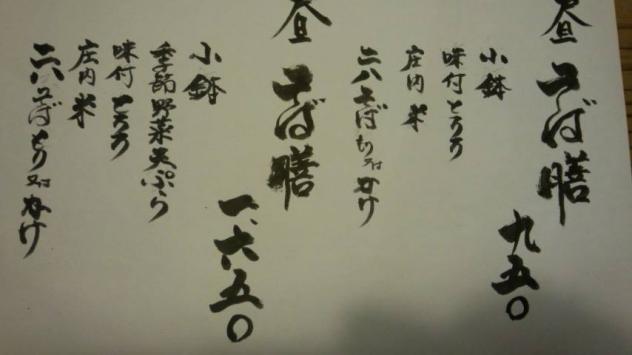 昼 そば膳
九五〇
小鉢
味付とろろ
庄内米
二八そばもり又はかけ
昼 そば膳
一、六五〇
小鉢
季節野菜天ぷら
味付とろろ
庄内米
二八そばもり又はかけ